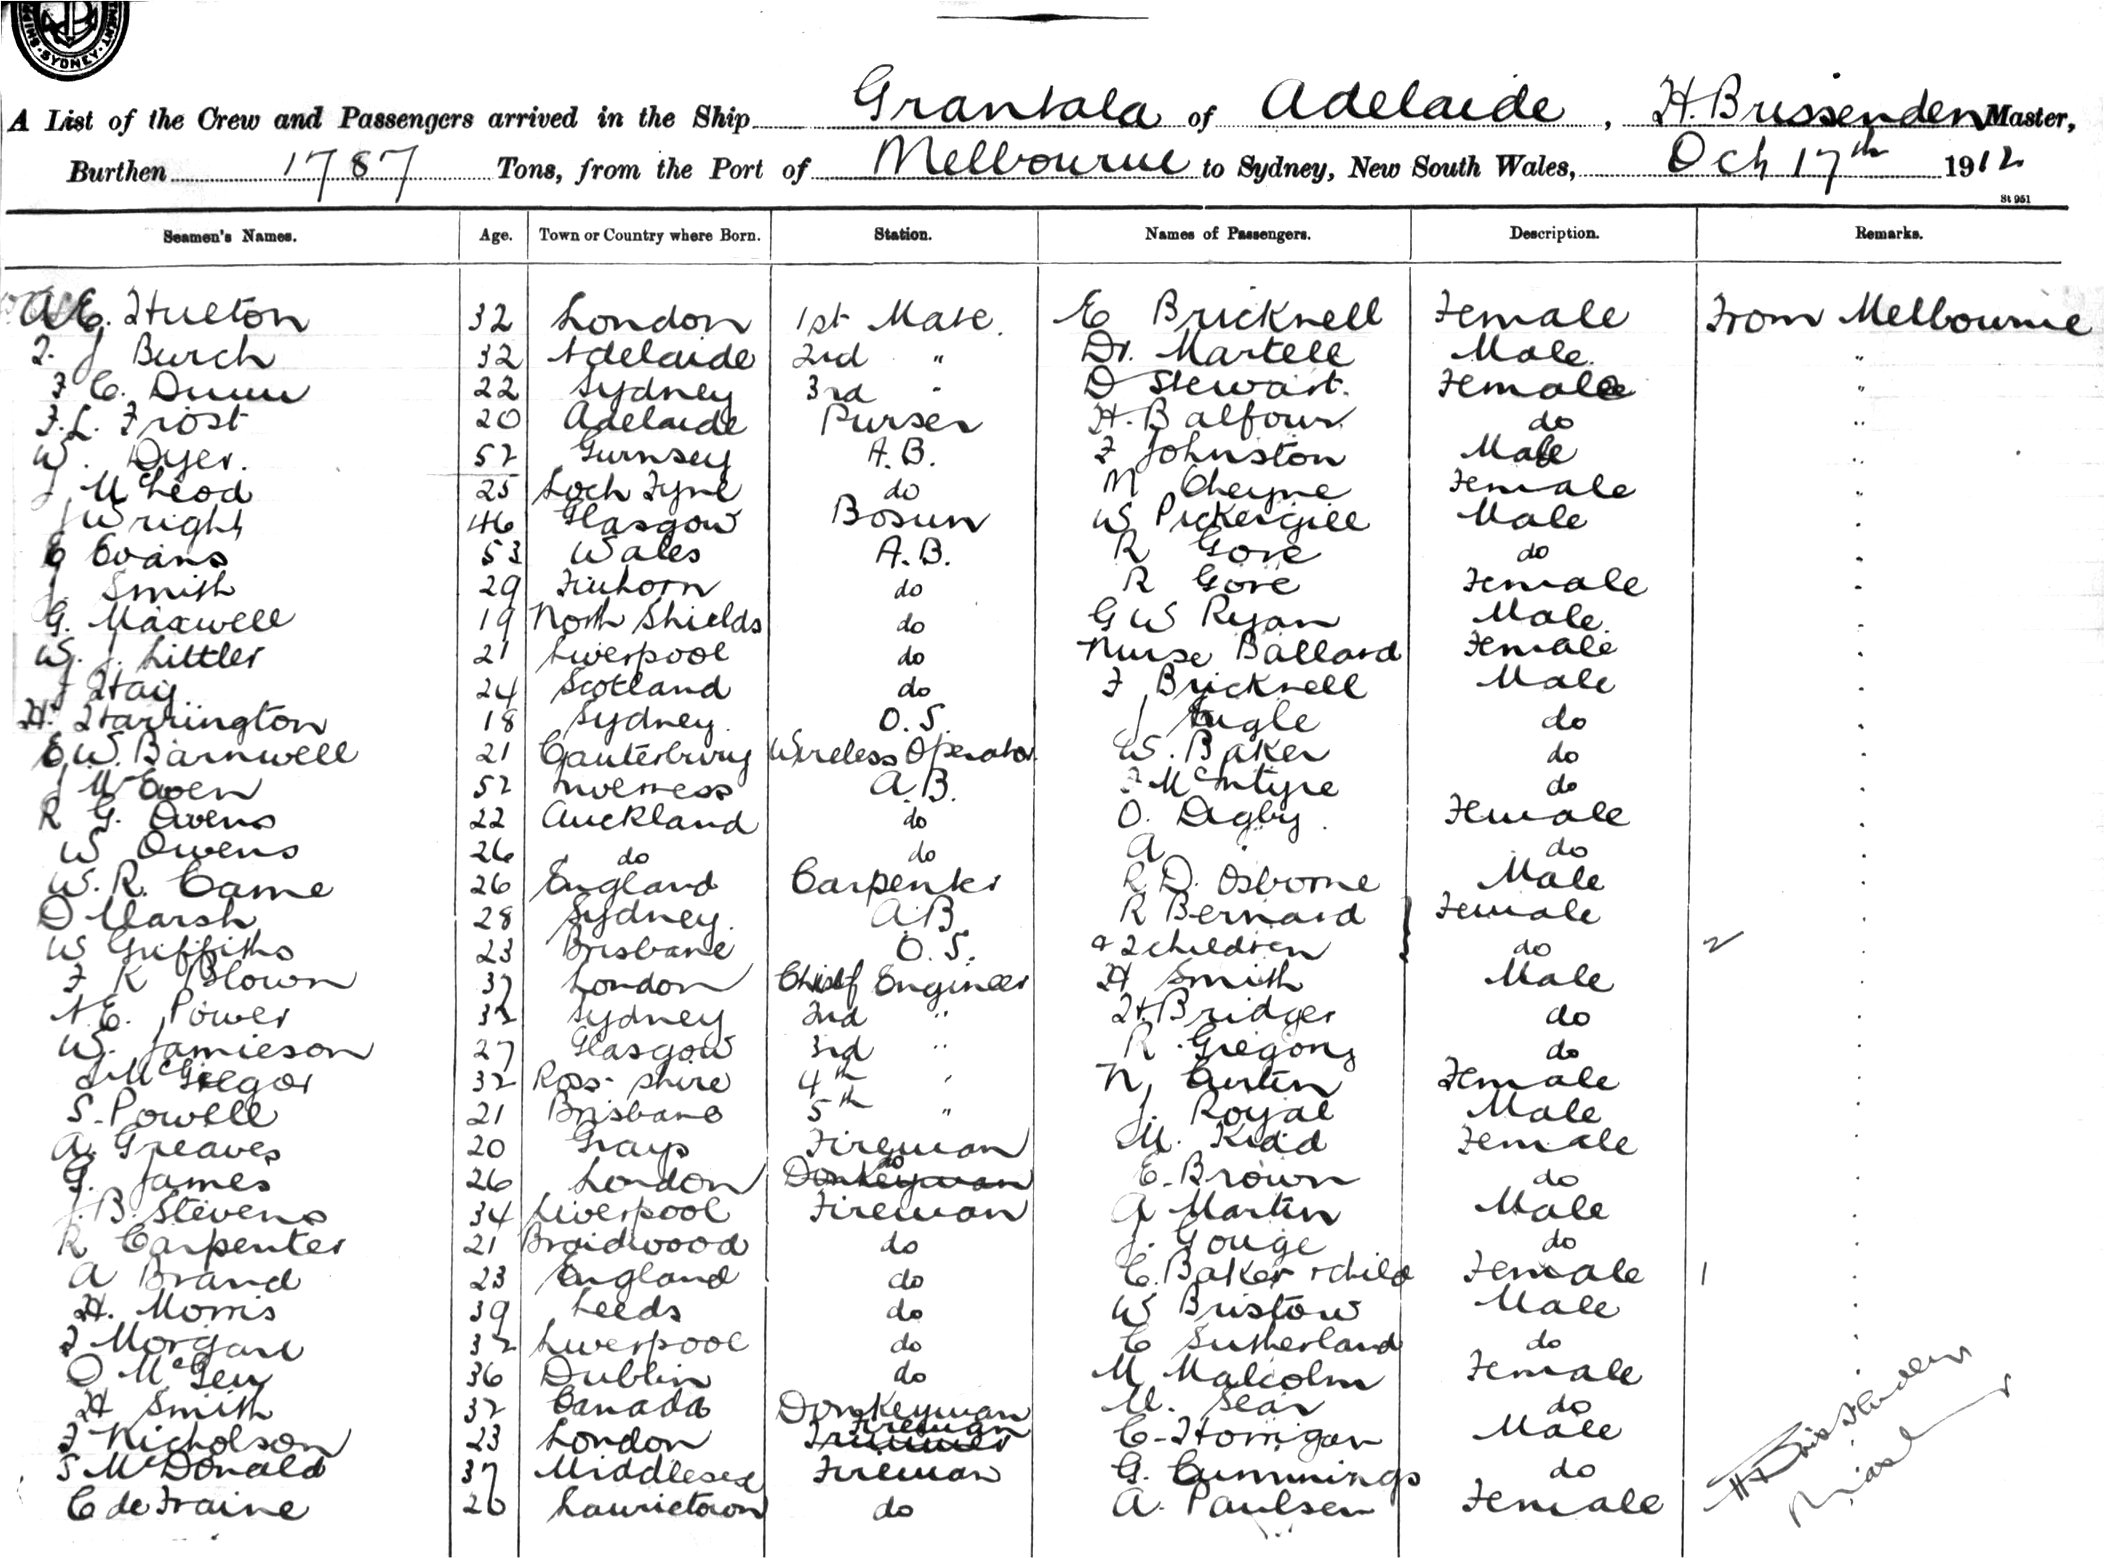 SYDNEY
A List of the Crew and Passengers arrived in the Ship Grantala of Adelaide, H. Brissenden Master,
Burthen 1787 Tons, from the Port of Melbourne to Sydney, New South Wales, Oct 17th 1912
St 951
Seamen's Names. Age. Town or Country where Born. Station. Names of Passengers. Description. Remarks.
A E. Hulton 32 London 1st Mate. E Bricknell Female From Melbourne
J Burch 32 Adelaide 2nd " Dr. Martell Male. "
F C. Dunn 22 Sydney 3rd " D Stewart. Female "
F. L. Frost 20 Adelaide Purser H. Balfour. do "
W. Dyer. 52 Gurnsey A.B. F Johnston Male "
J McLeod 25 Loch Fyne do M Cheyne Female "
J Wright 46 Glasgow Bosun W Pickergill Male "
E Evans 53 Wales A.B. R Gore do "
J. Smith 29 Finhorn do R Gore Female "
G. Maxwell 19 North Shields do G W Ryan Male. "
W. J. Littler 21 Liverpool do Nurse Ballard Female "
J Hay 24 Scotland do F Bricknell Male "
H. Harrington 18 Sydney. O.S. J do "
E. W. Barnwell 21 Canterbury Wireless Operator. W. Baker do "
J McEwen 52 Inverness A.B. McIntyre do "
R G. Owens 22 Auckland do O. Digby. Female "
W Owens 26 do do A " do "
W. R. Came 26 England Carpenter R. D. Osborne Male "
D Marsh 28 Sydney. A.B. R Bernard } Female "
W Griffiths 23 Brisbane O.S. & 2 children do 2 "
F K Blown 37 London Chief Engineer H Smith Male "
A. E. Power 32 Sydney 2nd " H. Bridger do "
W. Jamieson 27 Glasgow 3rd " R. Gregory do "
McGregor 32 Ross-shire 4th " N, Curtin Female "
S. Powell 21 Brisbane 5th " J. Royal Male "
A. Greaves 20 Grays Fireman M. Kidd Female "
G. James 26 London Donkeyman do E. Brown do "
J. B. Stevens 34 Liverpool Fireman A Martin Male "
R Carpenter 21 Braidwood do J. Gouge do "
A Brand 23 England do C. Baker + child Female 1 "
H. Morris 39 Leeds do W Bristow Male "
J Morgan 32 Liverpool do C Sutherland do "
O McGen 36 Dublin do M Malcolm Female "
H Smith 32 Canada Donkeyman M. Sear do
F Nicholson 23 London Trimmer Fireman C. Horrigan Male
S McDonald 37 Middlesex Fireman G. Cummings do
C de Fraine 26 Laurietown do A. Paulsen Female
H Brissenden